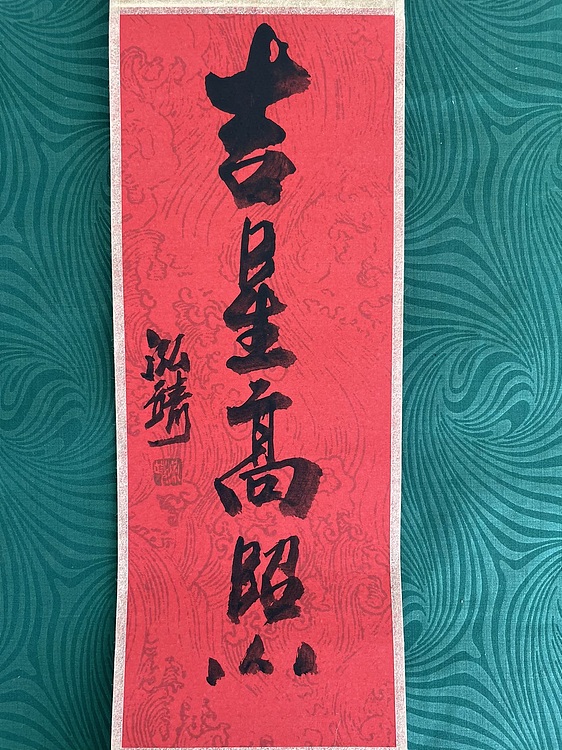 吉星高照
泓靖